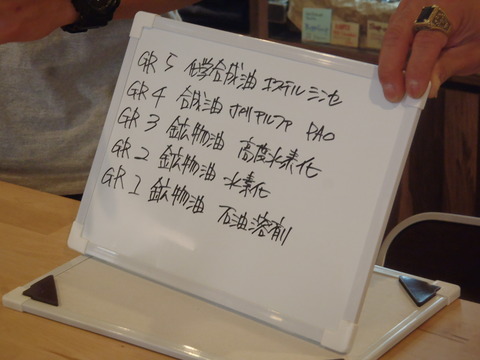 GR 5 化学合成油 エステル ジエ
GR 4 合成油 ポリアルファ PAO
GR 3 鉱物油 高度水素化
GR 2 鉱物油 水素化
GR 1 鉱物油 石油溶剤